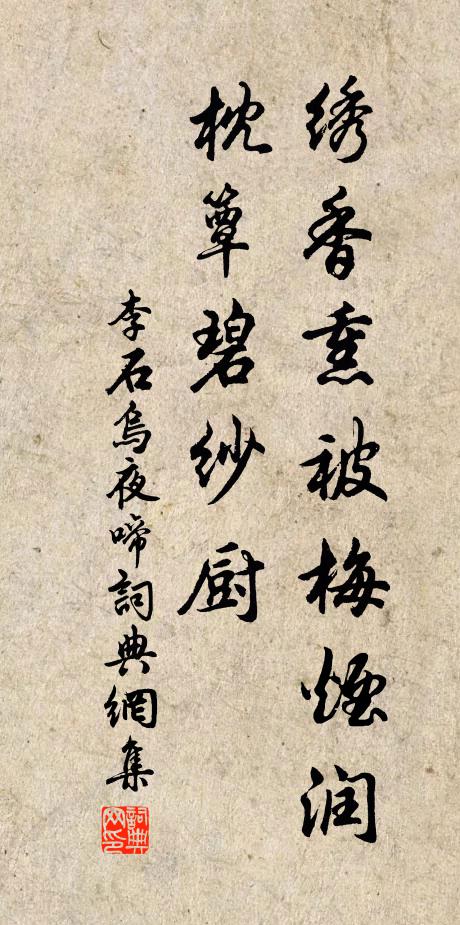 绣香熏被梅煙润
枕簟碧纱厨
李石烏夜啼詞典網集
詞典网印